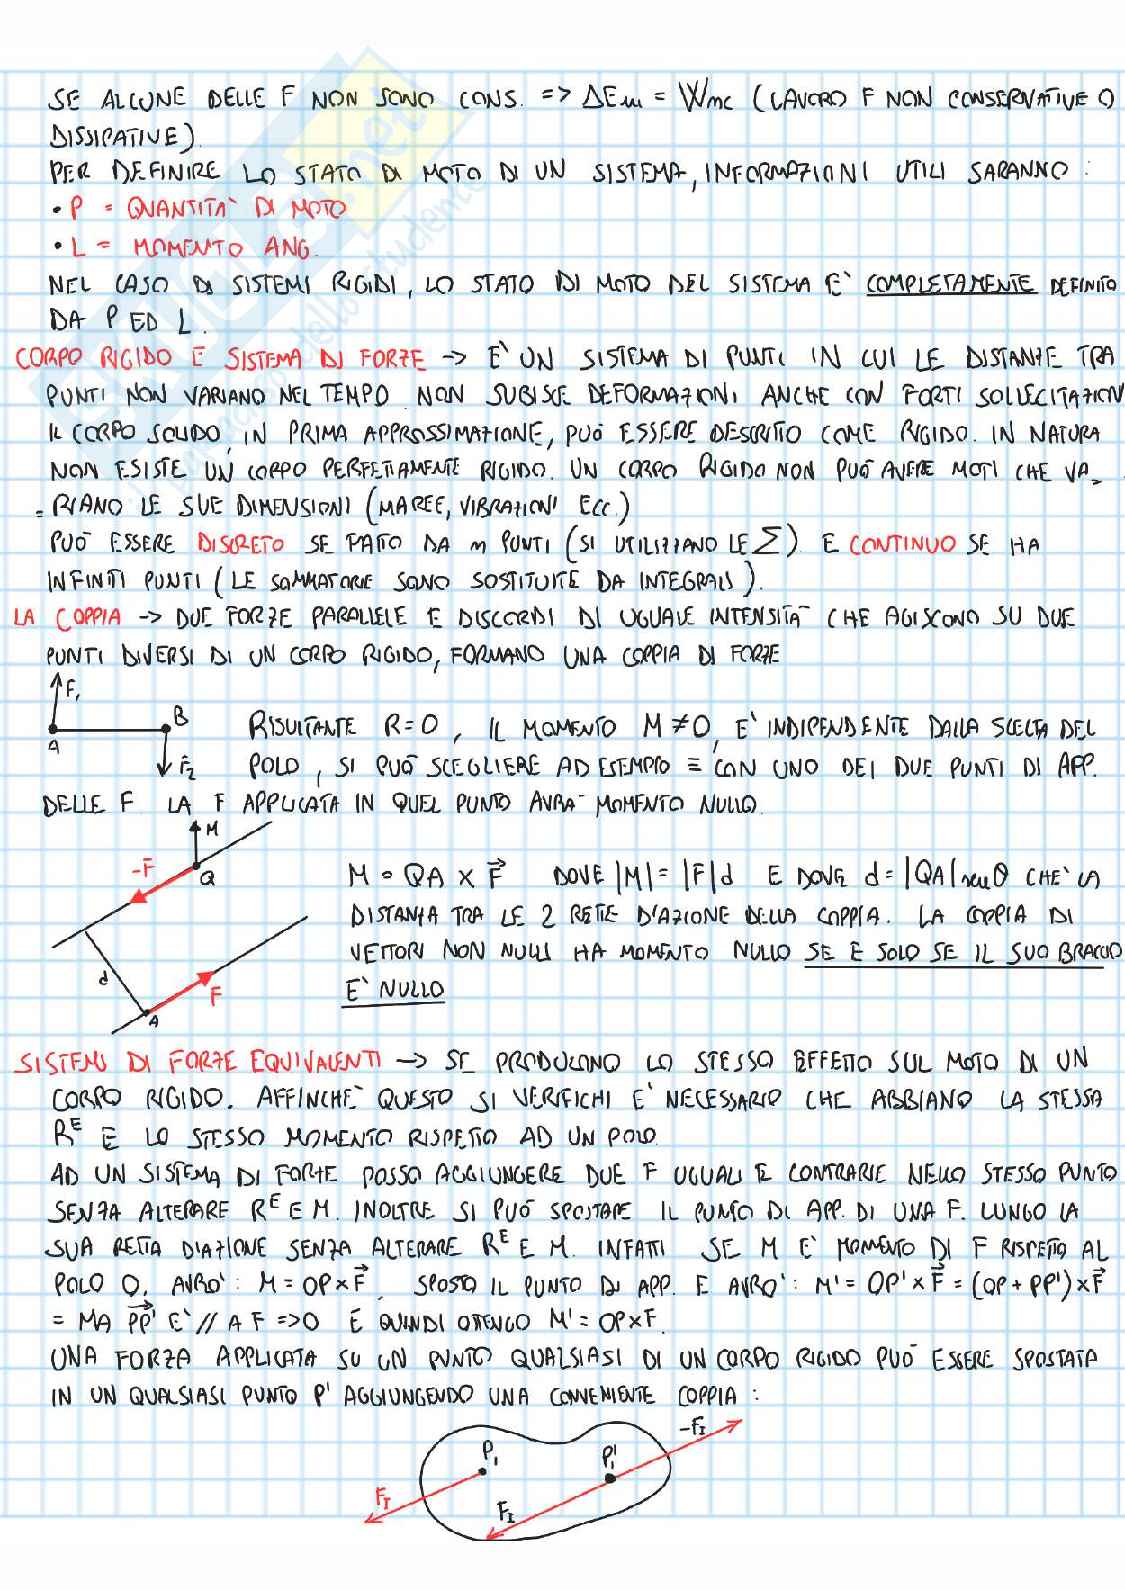 SE ALCUNE DELLE F NON SONO CONS. => ΔEm = Wmc (LAVORO F NON CONSERVATIVE O
DISSIPATIVE).
PER DEFINIRE LO STATO DI MOTO DI UN SISTEMA, INFORMAZIONI UTILI SARANNO :
• P = QUANTITA' DI MOTO
• L = MOMENTO ANG.
NEL CASO DI SISTEMI RIGIDI, LO STATO DI MOTO DEL SISTEMA E' COMPLETAMENTE DEFINITO
DA P ED L.
CORPO RIGIDO E SISTEMA DI FORZE -> E' UN SISTEMA DI PUNTI IN CUI LE DISTANZE TRA
PUNTI NON VARIANO NEL TEMPO. NON SUBISCE DEFORMAZIONI ANCHE CON FORTI SOLLECITAZION
IL CORPO SOLIDO, IN PRIMA APPROSSIMAZIONE, PUO' ESSERE DESCRITO COME RIGIDO. IN NATURA
NON ESISTE UN CORPO PERFETTAMENTE RIGIDO. UN CORPO RIGIDO NON PUO' AVERE MOTI CHE VA_
= RIANO LE SUE DIMENSIONI (MAREE, VIBRAZIONI ECC.)
PUO' ESSERE DISCRETO SE FATTO DA m PUNTI (SI UTILIZZANO LE Σ) E CONTINUO SE HA
INFINITI PUNTI (LE SOMMATORIE SONO SOSTITUITE DA INTEGRALI).
LA COPPIA -> DUE FORZE PARALLELE E DISCORDI DI UGUALE INTENSITA' CHE AGISCONO SU DUE
PUNTI DIVERSI DI UN CORPO RIGIDO, FORMANO UNA COPPIA DI FORZE
F₁
A
B
F₂
RISULTANTE R=0, IL MOMENTO M≠0, E' INDIPENDENTE DALLA SCELTA DEL
POLO, SI PUO' SCEGLIERE AD ESEMPIO ≡ CON UNO DEI DUE PUNTI DI APP.
DELLE F. LA F APPLICATA IN QUEL PUNTO AVRA' MOMENTO NULLO.
M
-F
Q
d
F
A
M = QA × F⃗ DOVE |M| = |F|d E DOVE d = |QA| senθ CHE' LA
DISTANZA TRA LE 2 RETTE D'AZIONE DELLA COPPIA. LA COPPIA DI
VETTORI NON NULLI HA MOMENTO NULLO SE E SOLO SE IL SUO BRACCIO
E' NULLO
SISTEMI DI FORZE EQUIVALENTI -> SE PRODUCONO LO STESSO EFFETTO SUL MOTO DI UN
CORPO RIGIDO. AFFINCHE' QUESTO SI VERIFICHI E' NECESSARIO CHE ABBIANO LA STESSA
Rᴱ E LO STESSO MOMENTO RISPETTO AD UN POLO.
AD UN SISTEMA DI FORZE POSSO AGGIUNGERE DUE F UGUALI E CONTRARIE NELLO STESSO PUNTO
SENZA ALTERARE Rᴱ E M. INOLTRE SI PUO' SPOSTARE IL PUNTO DI APP. DI UNA F. LUNGO LA
SUA RETTA D'AZIONE SENZA ALTERARE Rᴱ E M. INFATTI SE M E' MOMENTO DI F RISPETTO AL
POLO O, AVRO': M = OP × F⃗, SPOSTO IL PUNTO DI APP. E AVRO': M' = OP' × F⃗ = (OP + PP') × F⃗
= MA PP'⃗ E' // A F => 0 E QUINDI OTTENGO M' = OP × F.
UNA FORZA APPLICATA SU UN PUNTO QUALSIASI DI UN CORPO RIGIDO PUO' ESSERE SPOSTATA
IN UN QUALSIASI PUNTO P' AGGIUNGENDO UNA CONVENIENTE COPPIA :
-F_I
P₁
P₁'
F_I
F_I